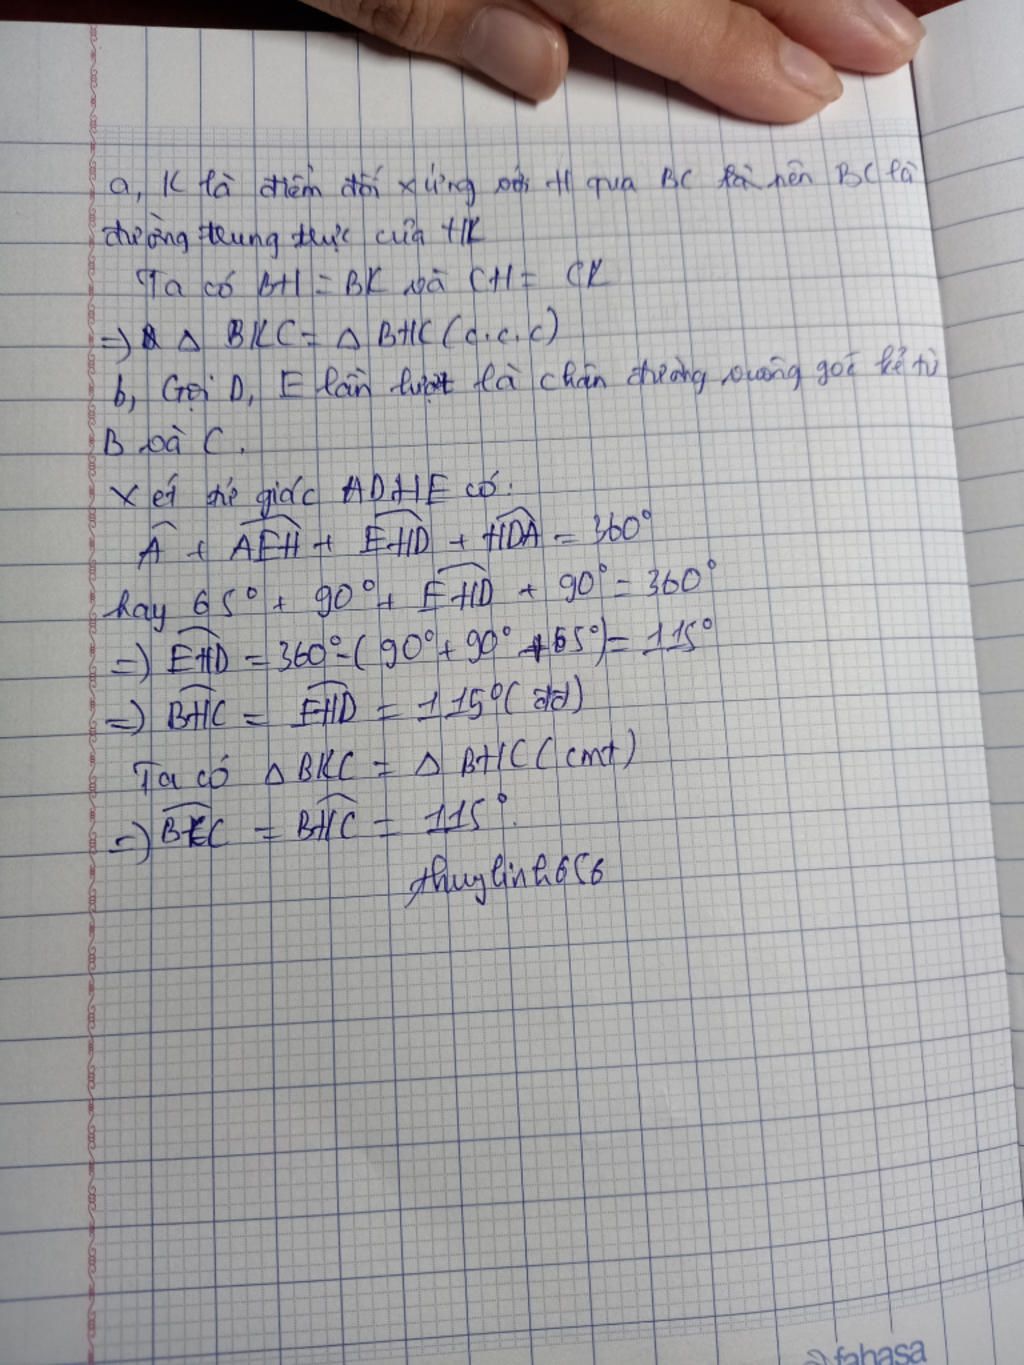 a, K là điểm đối xứng với H qua BC là nên BC là
đường trung trực của HK
Ta có BH = BK và CH = CK
=) Δ BKC = Δ BHC (c.c.c)
b, Gọi D, E lần lượt là chân đường vuông góc kẻ từ
B và C.
Xét tứ giác ADHE có:
Â + AEH + EHD + HDA = 360°
hay 65° + 90° + EHD + 90° = 360°
=) EHD = 360° - (90° + 90° + 65°) = 115°
=) BHC = EHD = 115° (đđ)
Ta có Δ BKC = Δ BHC (cmt)
=) BKC = BHC = 115°.
thuylinh656
fahasa